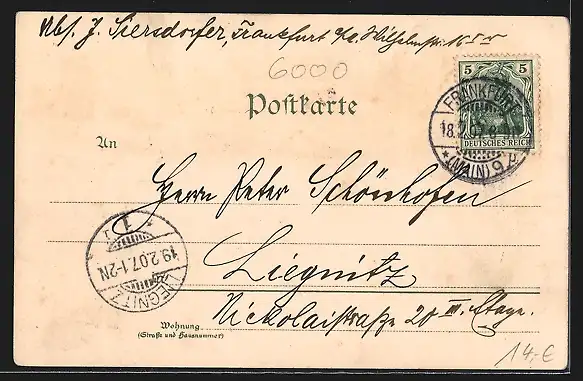 Abs. J. Siersdorfer, Frankfurt a/M. Wilhelmstr. 16
6000
5 5
DEUTSCHES REICH
FRANKFURT
18.2.07. 8-9N
* (MAIN) 9 *
Postkarte
An
Herrn Peter Schönhofen
Liegnitz
Nickolaistraße 20 III. Etage.
LIEGNITZ
19.2.07. 1-2N
* 1 *
Wohnung
(Straße und Hausnummer)
14,-€